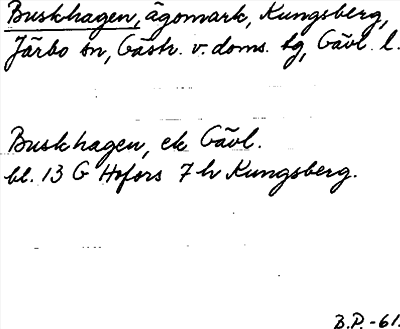 Buskhagen, ägomark, Kungsberg,
Järbo sn, Gästr. v. doms. tg, Gävl. l.
Buskhagen, ek Gävl.
bl. 13 G Hofors 7 h Kungsberg.
B.P.-61.